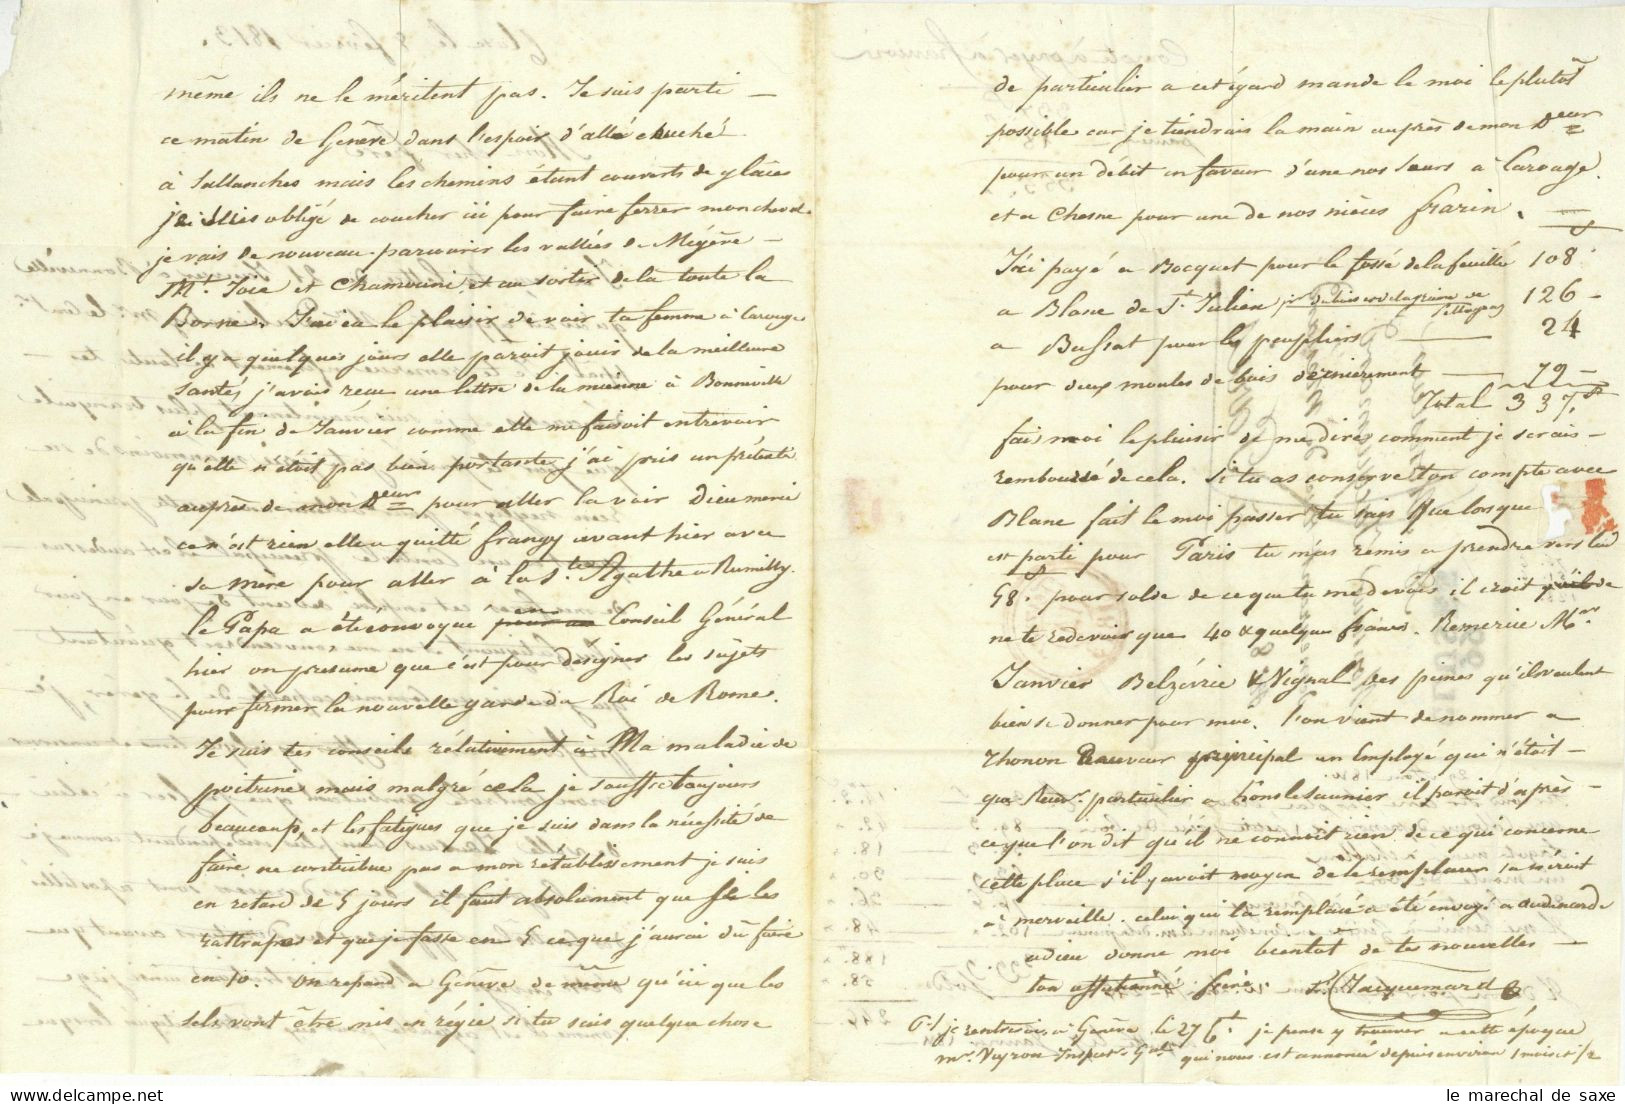 même ils ne le méritent pas. Je suis parti
ce matin de Genève dans l'espoir d'allé couché
à Sallanches mais les chemins étant couverts de glaces
je suis obligé de coucher ici pour faire ferrer mon cheval.
je vais de nouveau parcourir les vallées de Mégève
Mt. Joie et Chamouni et au sortir de la toute la
Borne. J'ai eu le plaisir de voir ta femme à Carouge
il y a quelques jours elle paroit jouir de la meilleure
santé, j'avais reçu une lettre de la mienne à Bonneville
à la fin de Janvier comme elle me faisoit entrevoir
qu'elle n'étoit pas bien portante j'ai pris un prétexte
auprès de mon Deur pour aller la voir Dieu merci
ce n'est rien elle a quitté frangy avant hier avec
sa mère pour aller à la Ste. Agathe a Rumilly.
le Papa a été convoqué en Conseil Général
hier on présume que c'est pour désigner les sujets
pour former la nouvelle garde du Roi de Rome.
Je suis tes conseils rélativement à Ma maladie de
poitrine mais malgré cela je souffre toujours
beaucoup, et les fatigues que je suis dans la nécessité de
faire ne contribue pas a mon rétablissement je suis
en retard de 5 jours il faut absolument que je les
rattrapes et que je fasse en 5 ce que j'aurai dû faire
en 10. On repand a Genève de même qu'ici que les
sels vont être mis en régie si tu sais quelque chose
de particulier a cet égard mande le moi le plutôt
possible car je tiendrais la main auprès de mon Deur
pour un débit en faveur d'une nos Sœurs à Carouge.
et a Chesne pour une de nos nièces frarin.
J'ai payé a Bocquet pour le fossé de la feuillé 108
a Blanc de St. Julien pr 126
a Bussat pour les peupliers 24
pour deux moules de bois dernièrement 79
Total 337
fais moi le plaisir de me dire comment je serais
remboursé de cela. Si tu as conservé ton compte avec
Blanc fait le moi passer tu sais que lorsque
est parti pour Paris tu m'as remis a prendre vers lui
58. pour solde de ce que tu me devois il croit de
ne te redevoir que 40 & quelques francs. Remercie Mr.
Janvier Belzévrie & Vignal des peines qu'ils veulent
bien se donner pour moi. L'on vient de nommer a
Thonon Receveur principal un Employé qui n'étoit
que Recevr. particulier a Lons le Saunier il paroit d'après
ce que l'on dit qu'il ne connoit rien de ce qui concerne
cette place s'il y avoit moyen de le remplacer ça seroit
à merveille. celui qui l'a remplacé a été envoyé a audenarde
adieu donne moi bientot de tes nouvelles
ton affectionné frère. Jacquemard
P.S. je rentrerai à Genève le 27 Ct. je pense y trouver a cette époque
mr. Veyron Inspectr. Gal qui nous est annoncé depuis environ 1 mois et 1/2
le marechal de saxe